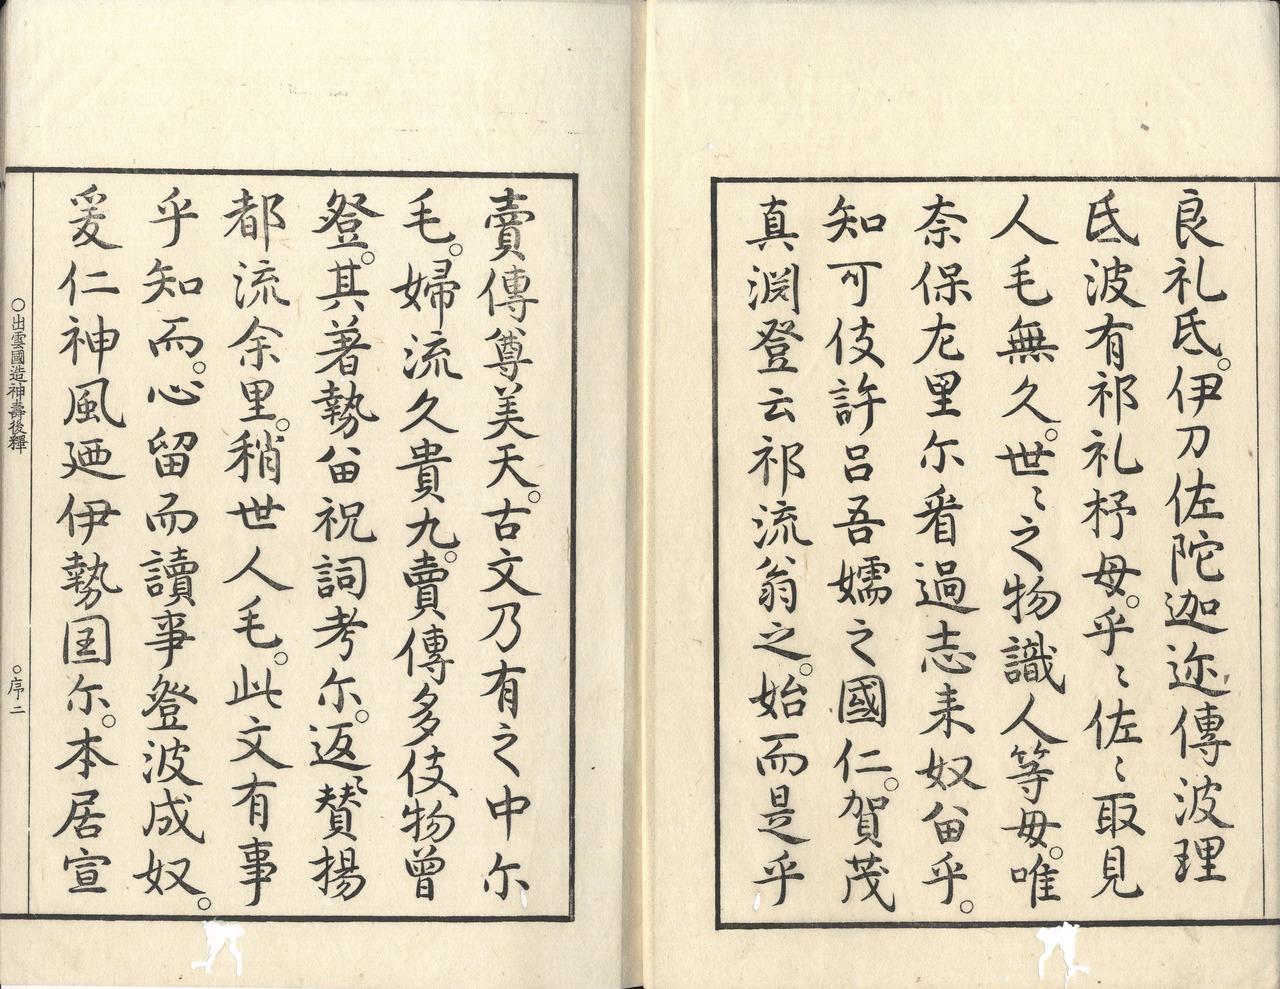 良礼氐。伊刀佐陀迦迩傳波理
氐波有祁礼杼母。乎〻佐〻取見
人毛無久。世〻之物識人等毋。唯
奈保尣里尓看過志来奴留乎。
知可伎許呂吾嬬之國仁。賀茂
真渕登云祁流翁之。始而是乎
賣傳尊美天。古文乃有之中尓
毛。婦流久貴九。賣傳多伎物曽
登。其著勢留祝詞考尓。返〻賛揚
都流余里。稍世人毛。此文有事
乎知而。心留而讀事登波成奴。
爰仁神風廼伊勢国尓。本居宣
○出雲國造神壽後釋
○序二